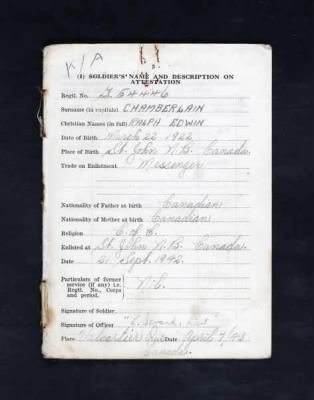 K/A
3
(I) SOLDIER'S NAME AND DESCRIPTION ON
ATTESTATION
Regtl. No. G 54446
Surname (in capitals) CHAMBERLAIN
Christian Names (in full) RALPH EDWIN
Date of Birth March 22 1922
Place of Birth St. John N.B. Canada
Trade on Enlistment Messenger
Nationality of Father at birth Canadian
Nationality of Mother at birth Canadian
Religion C. of E.
Enlisted at St. John N.B. Canada
Date 21 Sept. 1942.
Particulars of former
service (if any) i.e.
Regtl. No., Corps
and period. Nil.
Signature of Soldier
Signature of Officer
Place Valcartier Que Date April 7/43
Canada.